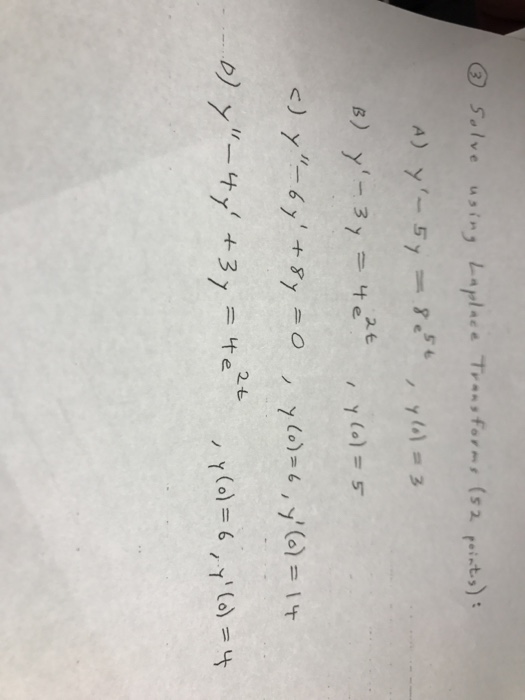 ③ Solve using Laplace Transforms (52 points):
A) y' - 5y = 8e^{5t} , y(0) = 3
B) y' - 3y = 4e^{2t} , y(0) = 5
C) y" - 6y' + 8y = 0 , y(0) = 6 , y'(0) = 14
D) y" - 4y' + 3y = 4e^{2t} , y(0) = 6 , y'(0) = 4